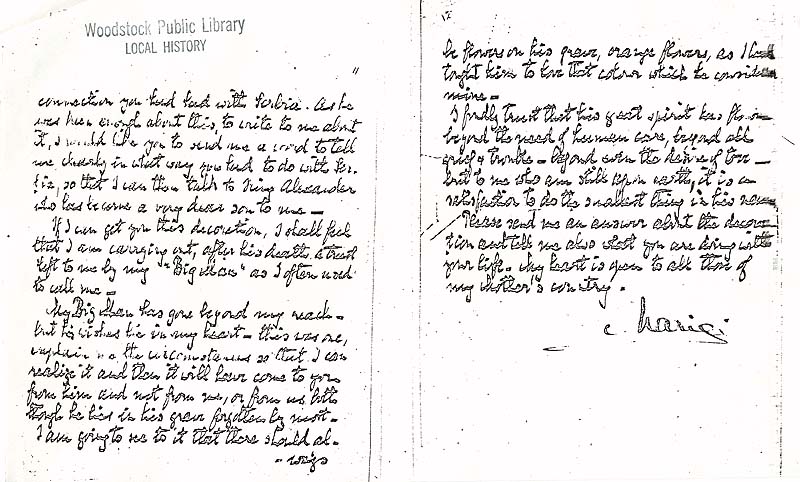 Woodstock Public Library
LOCAL HISTORY
11
connection you had had with Serbia. As he
was keen enough about this, to write to me about
it, I would like you to send me a word to tell
me, clearly in what way you had to do with Ser-
bia, so that I can then talk to King Alexander
who has become a very dear son to me —
If I can get you this decoration, I shall feel
that I am carrying out, after his death, a trust
left to me by my "Big Man" as I often used
to call me —
My Big Man has gone beyond my reach —
but his wishes lie in my heart — this was one,
explain me the circumstances so that I can
realize it and then it will have come to you
from him and not from me, or from us both
though he lies in his grave forgotten by most —
I am going to see to it that there should al-
- ways
12
be flowers on his grave, orange flowers, as I had
taught him to love that colour which he considered
mine —
I firmly trust that his great spirit has flown
beyond the need of human care, beyond all
grief & trouble — beyond even the desire of love —
but to me who am still upon earth, it is a
satisfaction to do the smallest thing in his name
Please send me an answer about the decora-
tion and tell me also what you are doing with
your life. My heart is open to all those of
my Mother's country.
Marie